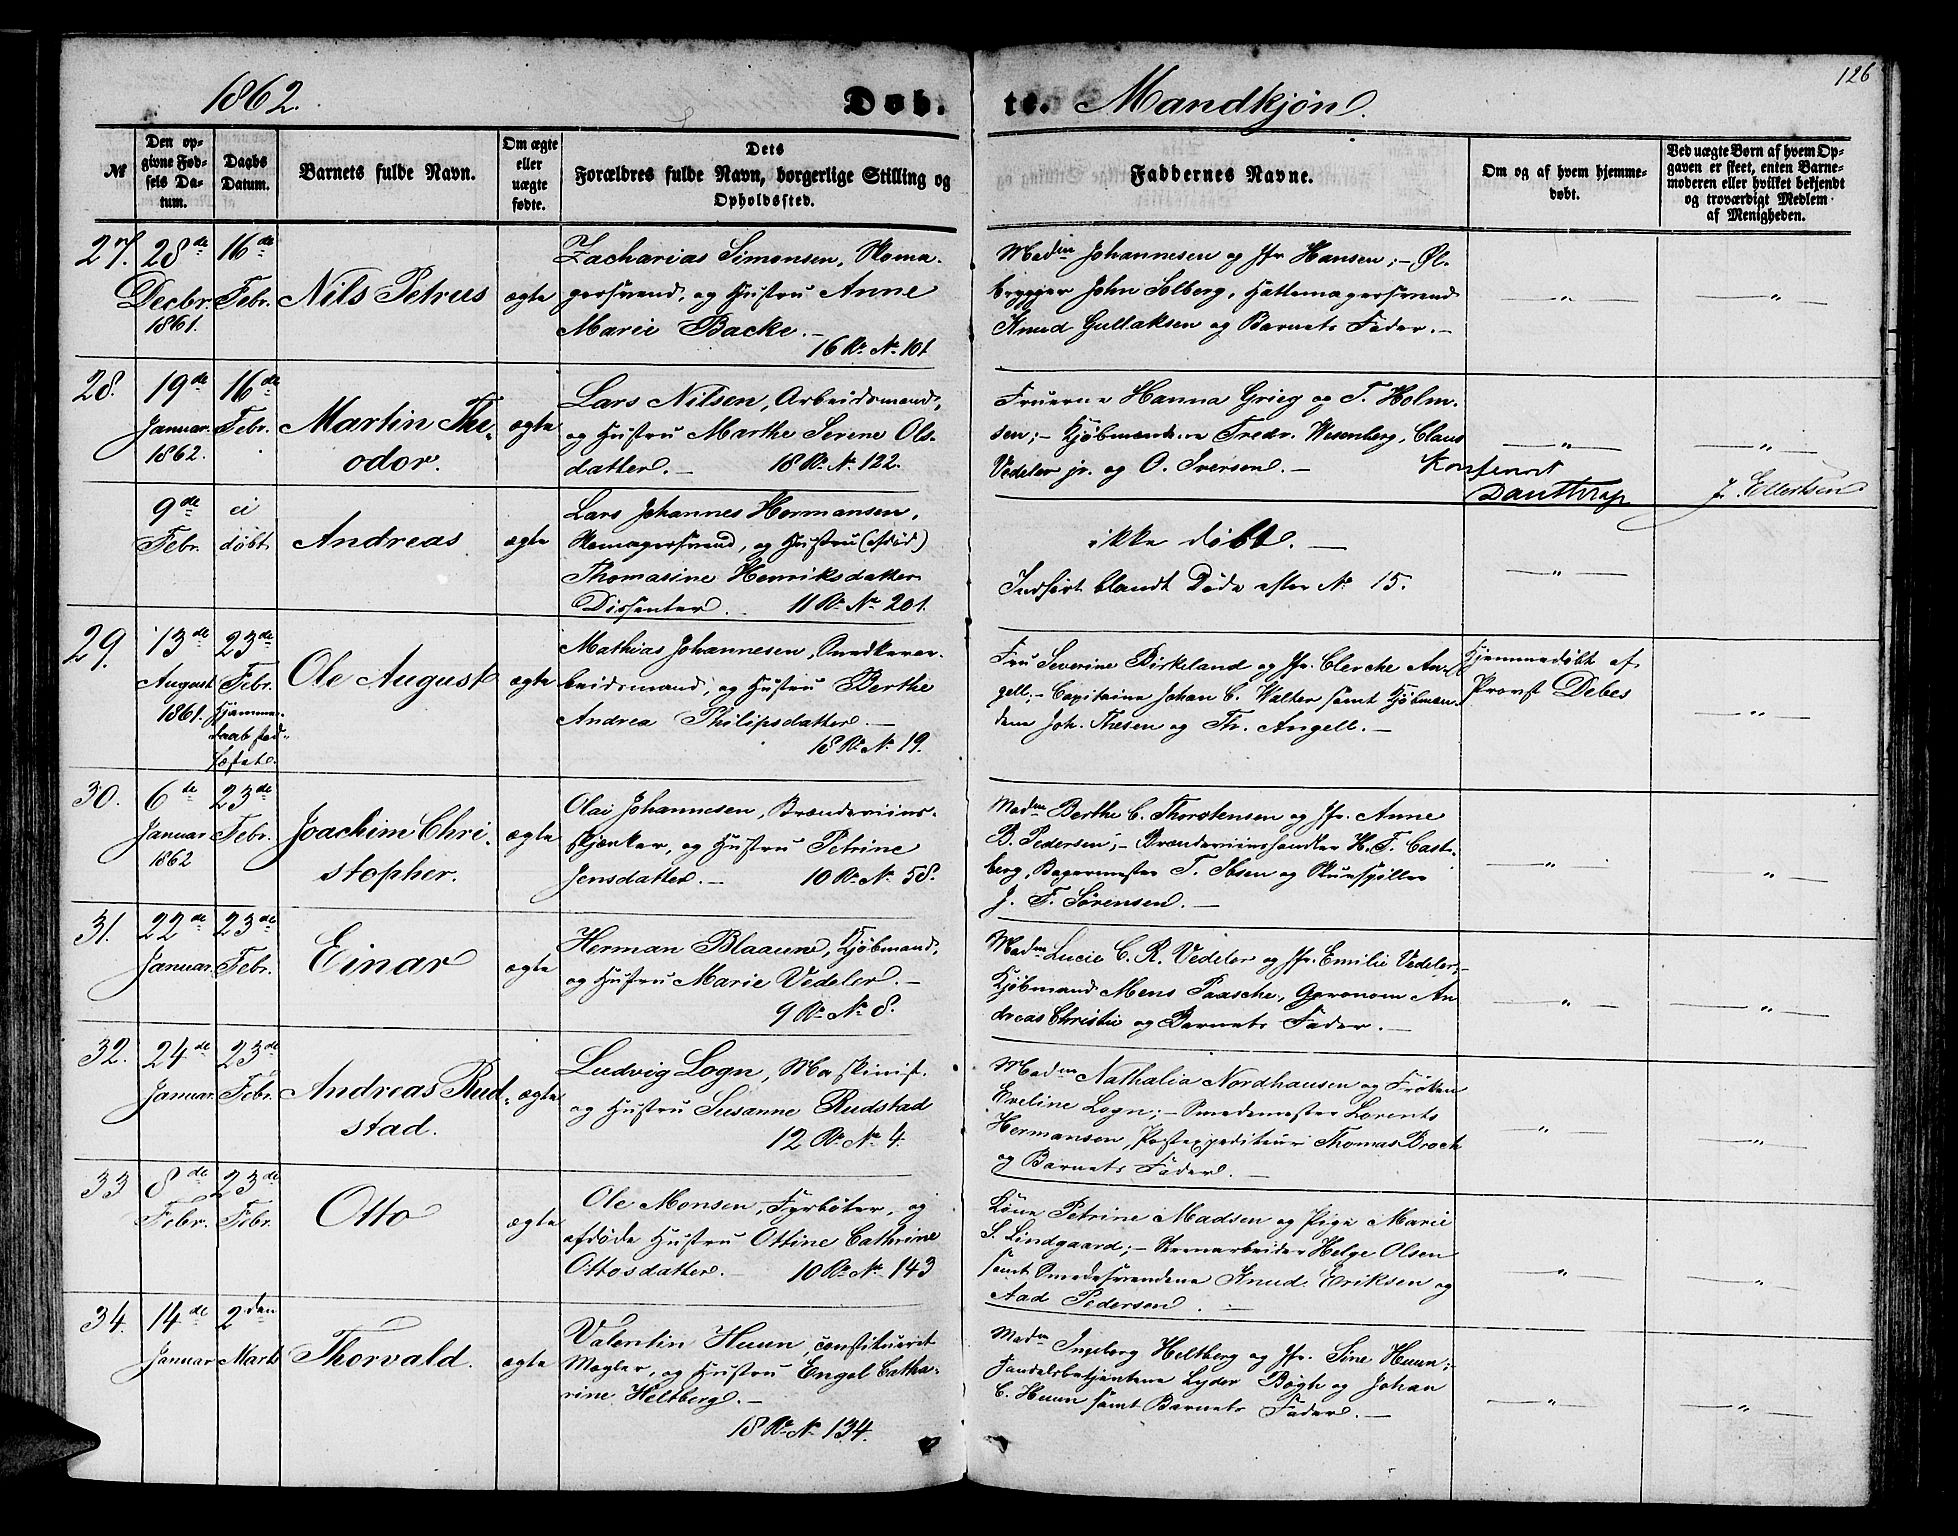 126
1862. Døb- te. Mandkjøn.
№
Den op-
givne Fød-
sels Da-
tum.
Daabs
Datum.
Barnets fulde Navn.
Om ægte
eller
uægte
fødte.
Dets
Forældres fulde Navn, borgerlige Stilling og
Opholdssted.
Faddernes Navne.
Om og af hvem hjemme-
døbt.
Ved uægte Børn af hvem Op-
gaven er skeet, enten Barne-
moderen eller hvilket bekjendt
og troværdigt Medlem
af Menigheden.
27. 28de Decbr. 1861. 16de Febr. Nils Petrus ægte
Zacharias Simonsen, Skoma-
gersvend, og Hustru Anne
Marie Backe.-
16 R. № 101
Madm Johannesen og Jfr. Hansen;- Øl-
brygger John Solberg, Hattemagersvend
Knud Gullaksen og Barnets Fader.-
28. 19de Januar. 1862. 16de Febr. Martin The-
odor. ægte
Lars Nilsen, Arbeidsmand,
og Hustru Marthe Serene Ols-
datter.- 18 R. № 122.
Fruerne Hanna Grieg og T. Holm-
sen;- Kjøbmændene Fredr. Wesenberg, Claus
Vedeler jr. og O. Iversen.-
Konfereret
Danstrup J. Ellertsen
9de Febr. ei døbt Andreas ægte
Lars Johannes Hermansen,
Skomagersvend, og Hustru (afdød)
Thomasine Henriksdatter
Dissenter. 11 R. № 201.
ikke døbt.-
Indført blandt Døde efter № 15.
29. 13de August 1861. 23de Febr. Hjemme-
daab stad-
fæstet. Ole August ægte
Mathias Johannesen, Snedkerar-
beidsmand, og Hustru Berthe
Andrea Philipsdatter.-
18 R. № 19.
Fru Severine Birkeland og Jfr. Clerche An-
gell;- Capitaine Johan C. Walter samt Kjøbmæn-
dene Joh. Thesen og Th. Angell.-
Hjemmedøbt af
Provst Debes
30. 6te Januar 1862 23de Febr. Joachim Chri-
stopher. ægte
Olai Johannesen, Brændeviins-
skjænker, og Hustru Petrine
Jensdatter.- 10 R. № 58.
Madm Berthe C. Thorstensen og Jfr. Anne
B. Pedersen;- Brændeviinshandler H. F. Cast-
berg, Bagermester T. Ibsen og Skuespiller
J. F. Sørensen.-
31. 22de Januar. 23de Febr. Einar ægte
Herman Blaauw, Kjøbmand,
og Hustru Marie Vedeler.-
9 R. № 8.
Madm Lucie C. R. Vedeler og Jfr. Emilie Vedeler;-
Kjøbmand Mens Paasche, Agronom An
dreas Christie og Barnets Fader.-
32. 24de Januar 23de Febr. Andreas Rud-
stad. ægte
Ludvig Logn, Maskinist,
og Hustru Susanne Rudstad
12 R. № 4.
Madm Nathalia Nordhausen og Frøken
Eveline Logn;- Smedemester Lorents
Hermansen, Postexpediteur Thomas Broch
og Barnets Fader.-
33 8de Febr. 23de Febr. Otto ægte
Ole Monsen, Fyrbøter, og
afdøde Hustru Ottine Cathrine
Ottosdatter.- 10 R. № 143
Kone Petrine Madsen og Pige Marie
S. Lindgaard;- Steenarbeider Helge Olsen
samt Smedesvendene Knud Eriksen og
Aad Pedersen.-
34. 14de Januar 2den Marts Thorvald. ægte
Valentin Huun, constitueret
Mægler, og Hustru Engel Catha-
rine Heltberg.-
18 R. № 134.
Madm Ingeborg Heltberg og Jfr. Sine Huun;-
Handelsbetjentene Lyder Bøgh og Johan
C. Huun samt Barnets Fader.-